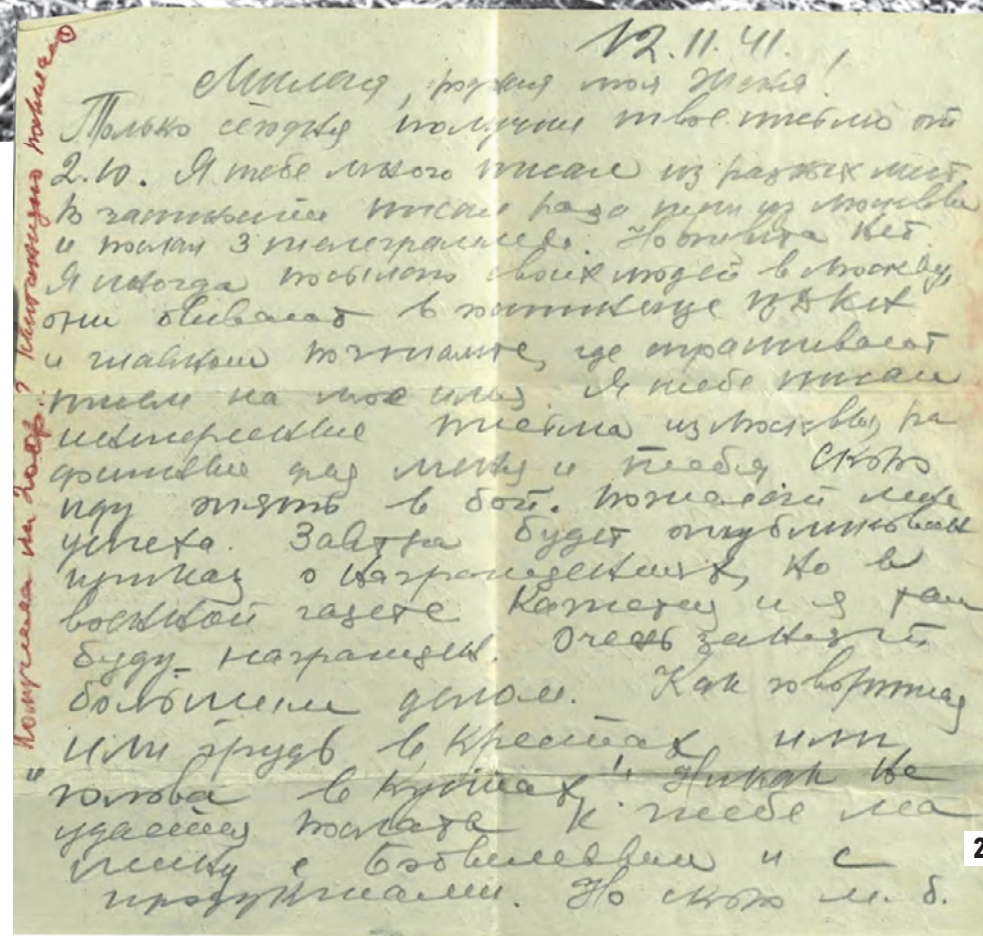 12.11.41.
Милая, родная моя Женя!
Только сегодня получил твое письмо от
2.10. Я тебе много писал из разных мест.
В частности писал раза пяти из Москвы
и послал 3 телеграммы. Но ответа нет.
Я иногда посылаю своих людей в Москву,
они бывают в гостинице ЦДКА
и главном почтамте, где спрашивают
писем на мое имя. Я тебе писал
интересные письма из Москвы,
для меня и тебя Скоро
иду опять в бой. Пожелай мне
успеха. Завтра будет опубликован
приказ о награждениях, но в
военной газете Кажется и я там
буду награжден. Очень занят
большим делом. Как говорится
или грудь в крестах, или
"голова в кустах". Никак не
удается послать к тебе ма
шину с и с
продуктами. Но скоро м. б.
2